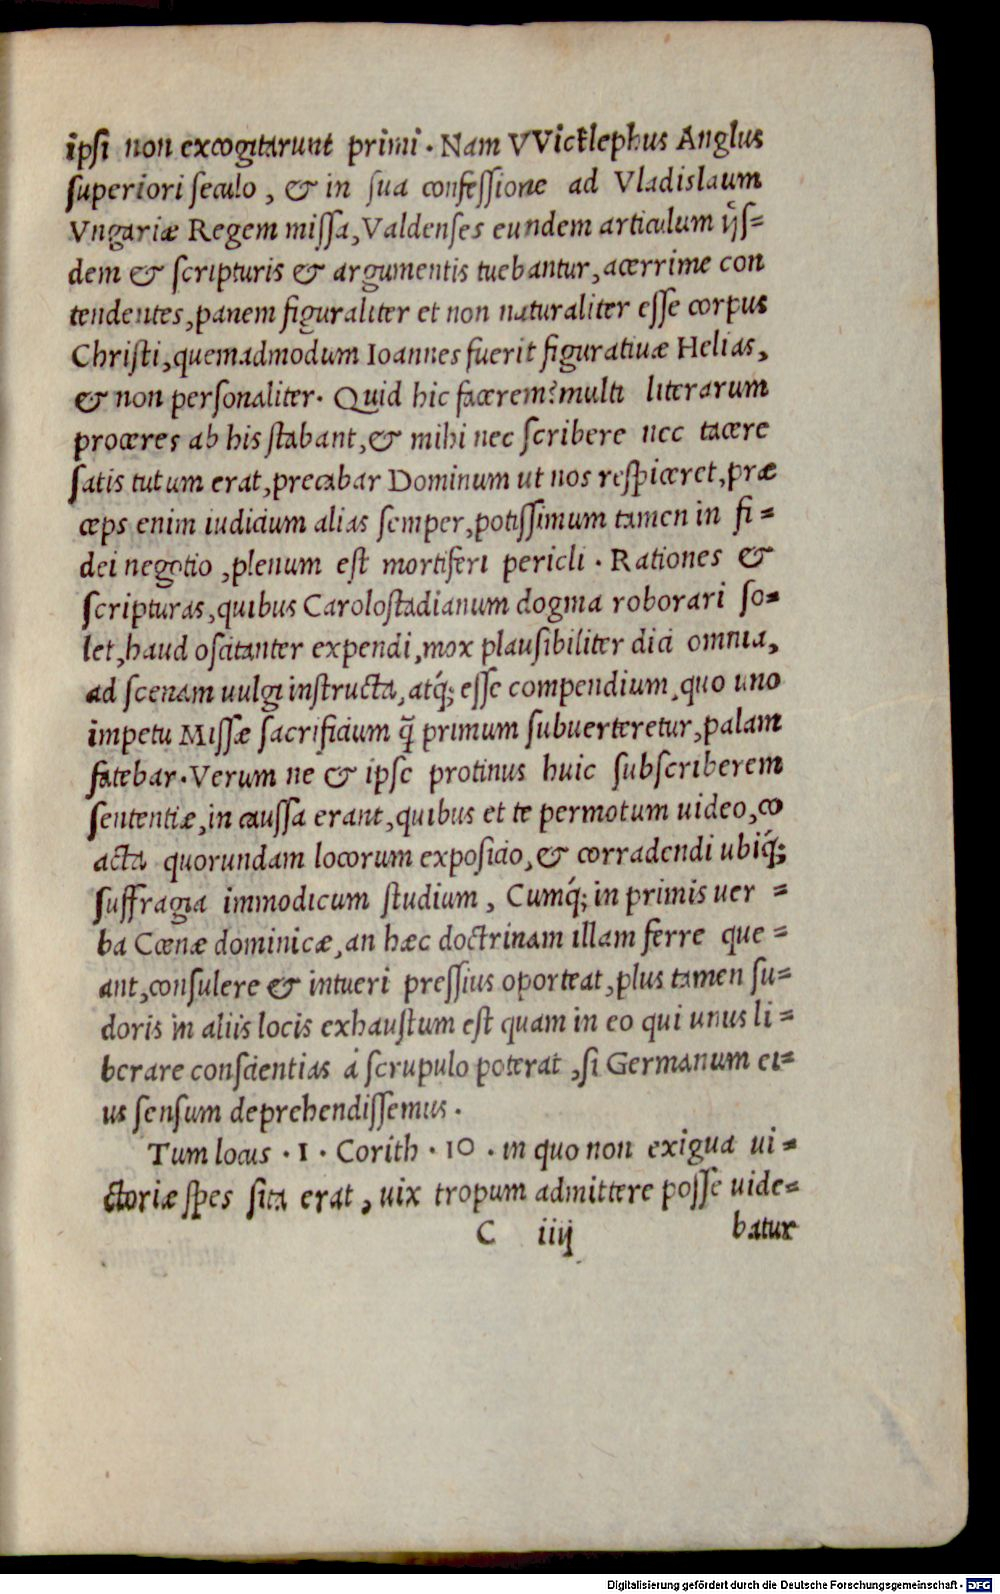 ipsi non excogitarunt primi. Nam VVicklephus Anglus
superiori seculo, & in sua confessione ad Vladislaum
Vngariæ Regem missa, Valdenses eundem articulum ijs=
dem & scripturis & argumentis tuebantur, acerrime con
tendentes, panem figuraliter et non naturaliter esse corpus
Christi, quemadmodum Ioannes fuerit figuratiuæ Helias,
& non personaliter. Quid hic facerem? multi literarum
proceres ab his stabant, & mihi nec scribere nec tacere
satis tutum erat, precabar Dominum ut nos respiceret, præ
ceps enim iudicium alias semper, potissimum tamen in fi=
dei negotio, plenum est mortiferi pericli. Rationes &
scripturas, quibus Carolostadianum dogma roborari so=
let, haud oscitanter expendi, mox plausibiliter dici omnia,
ad scenam uulgi instructa, atq́; esse compendium, quo uno
impetu Missæ sacrificium q̃ primum subuerteretur, palam
fatebar. Verum ne & ipse protinus huic subscriberem
sententiæ, in caussa erant, quibus et te permotum uideo, co
acta quorundam locorum exposicio, & corradendi ubiq́;
suffragia immodicum studium, Cumq́; in primis uer =
ba Cœnæ dominicæ, an hæc doctrinam illam ferre que =
ant, consulere & intueri pressius oporteat, plus tamen su=
doris in aliis locis exhaustum est quam in eo qui unus li =
berare conscientias á scrupulo poterat, si Germanum ei=
us sensum deprehendissemus.
Tum locus. 1. Corith. 10. in quo non exigua ui=
ctoriæ spes sita erat, uix tropum admittere posse uide=
C iiij batur
Digitalisierung gefördert durch die Deutsche Forschungsgemeinschaft - DFG